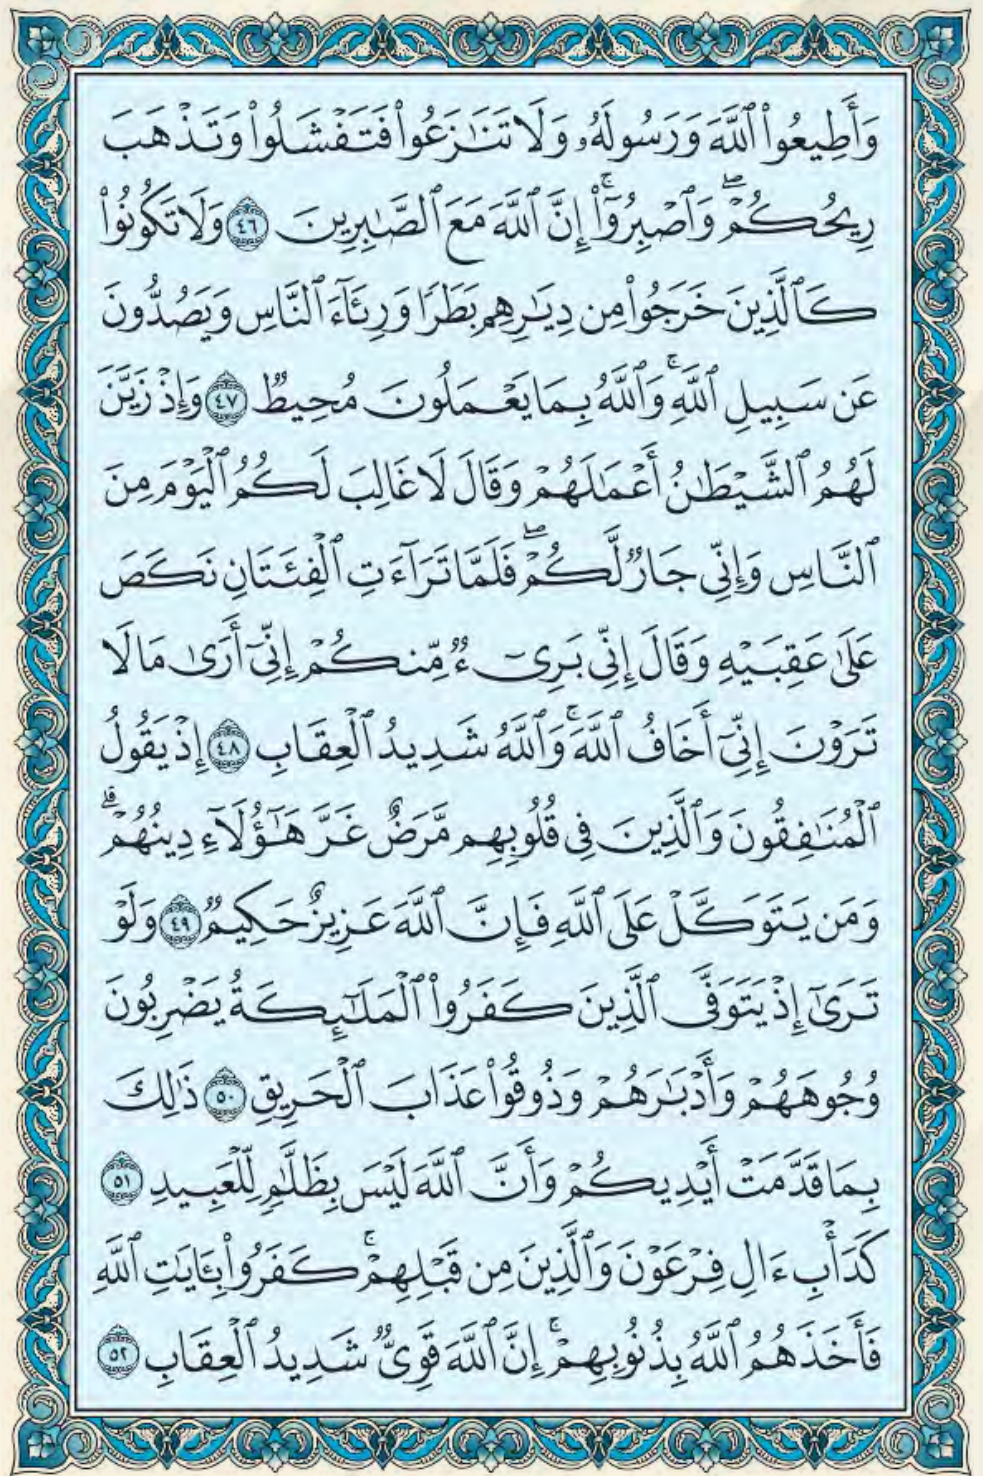 وَأَطِيعُوا۟ ٱللَّهَ وَرَسُولَهُۥ وَلَا تَنَٰزَعُوا۟ فَتَفْشَلُوا۟ وَتَذْهَبَ
رِيحُكُمْ ۖ وَٱصْبِرُوٓا۟ ۚ إِنَّ ٱللَّهَ مَعَ ٱلصَّٰبِرِينَ ٤٦ وَلَا تَكُونُوا۟
كَٱلَّذِينَ خَرَجُوا۟ مِن دِيَٰرِهِم بَطَرًا وَرِئَآءَ ٱلنَّاسِ وَيَصُدُّونَ
عَن سَبِيلِ ٱللَّهِ ۚ وَٱللَّهُ بِمَا يَعْمَلُونَ مُحِيطٌ ٤٧ وَإِذْ زَيَّنَ
لَهُمُ ٱلشَّيْطَٰنُ أَعْمَٰلَهُمْ وَقَالَ لَا غَالِبَ لَكُمُ ٱلْيَوْمَ مِنَ
ٱلنَّاسِ وَإِنِّى جَارٌ لَّكُمْ ۖ فَلَمَّا تَرَآءَتِ ٱلْفِئَتَانِ نَكَصَ
عَلَىٰ عَقِبَيْهِ وَقَالَ إِنِّى بَرِىٓءٌ مِّنكُمْ إِنِّىٓ أَرَىٰ مَا لَا
تَرَوْنَ إِنِّىٓ أَخَافُ ٱللَّهَ ۚ وَٱللَّهُ شَدِيدُ ٱلْعِقَابِ ٤٨ إِذْ يَقُولُ
ٱلْمُنَٰفِقُونَ وَٱلَّذِينَ فِى قُلُوبِهِم مَّرَضٌ غَرَّ هَٰٓؤُلَآءِ دِينُهُمْ ۗ
وَمَن يَتَوَكَّلْ عَلَى ٱللَّهِ فَإِنَّ ٱللَّهَ عَزِيزٌ حَكِيمٌ ٤٩ وَلَوْ
تَرَىٰٓ إِذْ يَتَوَفَّى ٱلَّذِينَ كَفَرُوا۟ ٱلْمَلَٰٓئِكَةُ يَضْرِبُونَ
وُجُوهَهُمْ وَأَدْبَٰرَهُمْ وَذُوقُوا۟ عَذَابَ ٱلْحَرِيقِ ٥٠ ذَٰلِكَ
بِمَا قَدَّمَتْ أَيْدِيكُمْ وَأَنَّ ٱللَّهَ لَيْسَ بِظَلَّٰمٍ لِّلْعَبِيدِ ٥١
كَدَأْبِ ءَالِ فِرْعَوْنَ وَٱلَّذِينَ مِن قَبْلِهِمْ ۚ كَفَرُوا۟ بِـَٔايَٰتِ ٱللَّهِ
فَأَخَذَهُمُ ٱللَّهُ بِذُنُوبِهِمْ ۚ إِنَّ ٱللَّهَ قَوِىٌّ شَدِيدُ ٱلْعِقَابِ ٥٢